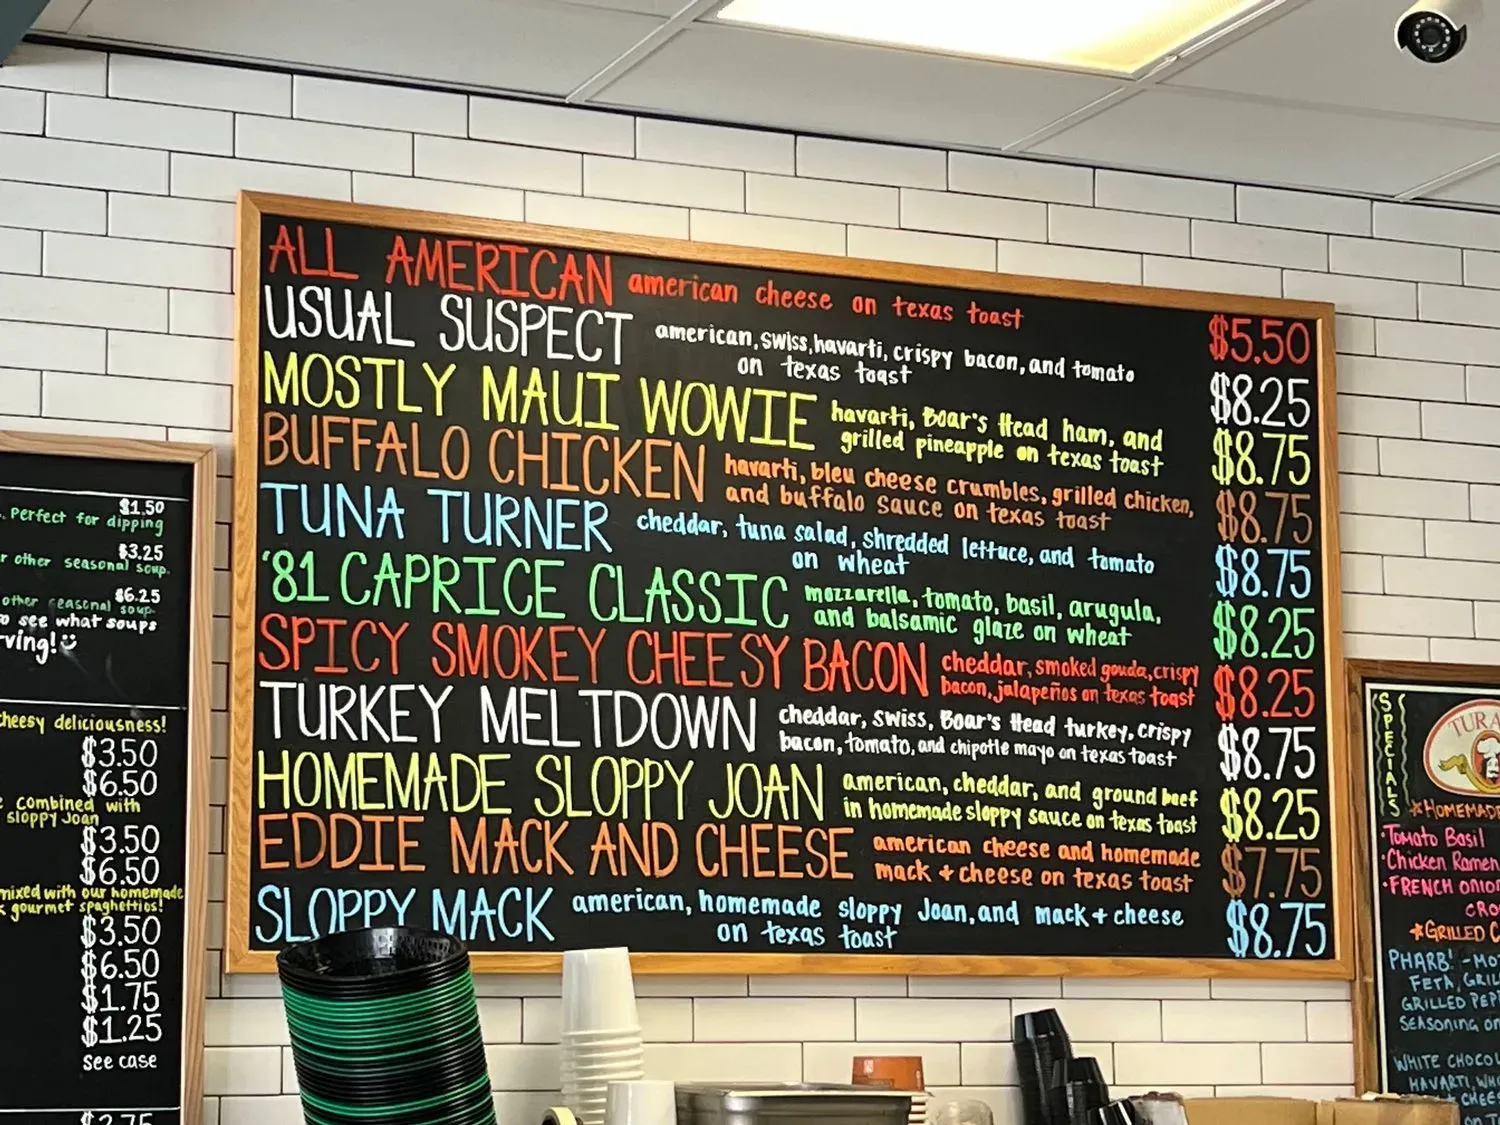 ALL AMERICAN american cheese on texas toast $5.50
USUAL SUSPECT american, swiss, havarti, crispy bacon, and tomato $8.25
on texas toast
MOSTLY MAUI WOWIE havarti, Boar's Head ham, and $8.75
grilled pineapple on texas toast
BUFFALO CHICKEN havarti, bleu cheese crumbles, grilled chicken, $8.75
and buffalo sauce on texas toast
TUNA TURNER cheddar, tuna salad, shredded lettuce, and tomato $8.75
on wheat
'81 CAPRICE CLASSIC mozzarella, tomato, basil, arugula, $8.25
and balsamic glaze on wheat
SPICY SMOKEY CHEESY BACON cheddar, smoked gouda, crispy $8.25
bacon, jalapeños on texas toast
TURKEY MELTDOWN cheddar, swiss, Boar's Head turkey, crispy $8.75
bacon, tomato, and chipotle mayo on texas toast
HOMEMADE SLOPPY JOAN american, cheddar, and ground beef $8.25
in homemade sloppy sauce on texas toast
EDDIE MACK AND CHEESE american cheese and homemade $7.75
mack + cheese on texas toast
SLOPPY MACK american, homemade sloppy Joan, and mack + cheese $8.75
on texas toast
$1.50
. Perfect for dipping
$3.25
r other seasonal soup.
$6.25
other seasonal soup.
o see what soups
rving!
cheesy deliciousness!
$3.50
$6.50
combined with
sloppy Joan
$3.50
$6.50
mixed with our homemade
gourmet spaghettios!
$3.50
$6.50
$1.75
$1.25
see case
$2.75
SPECIALS
TURA
HOMEMADE
Tomato Basil
Chicken Ramen
FRENCH ONION
CRO
GRILLED C
PHARB! -MO
FETA, GRIL
GRILLED PEP
SEASONING on
WHITE CHOCOL
HAVARTI, WH
+ CHEES
on T